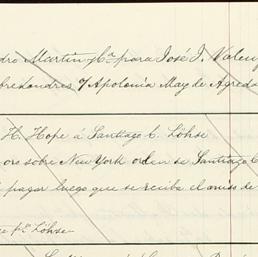 dro Martin y Ca para José J. Valen
bre Londres & Apolonia May de Agreda
H. Hope á Santiago C. Löhse
oro sobre New York orden de Santiago C
pagar luego que se reciba el aviso de
pr Löhse